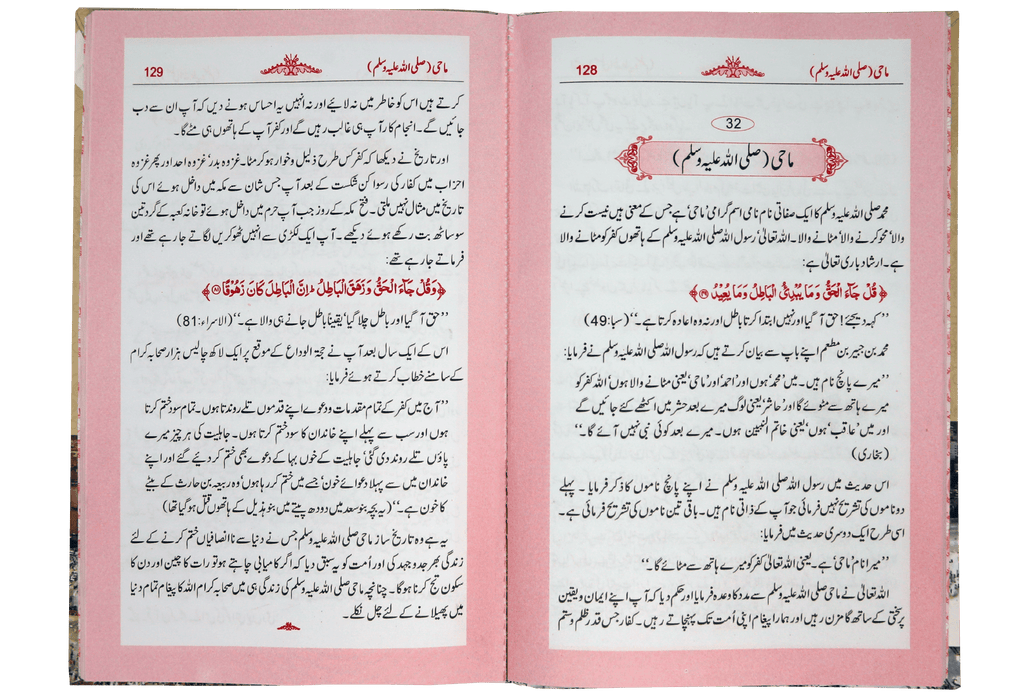 ماحی (صلی اللہ علیہ وسلم)
128
32
ماحی (صلی اللہ علیہ وسلم)
محمد صلی اللہ علیہ وسلم کا ایک صفاتی نام نامی اسم گرامی 'ماحی' ہے جس کے معنی ہیں نیست کرنے
والا' محو کرنے والا' مٹانے والا۔ اللہ تعالیٰ' رسول اللہ صلی اللہ علیہ وسلم کے ہاتھوں کفر کو مٹانے والا
ہے۔ ارشاد باری تعالیٰ ہے:
﴿قُلْ جَآءَ الْحَقُّ وَمَا يُبْدِئُ الْبَاطِلُ وَمَا يُعِيْدُ ۝۴۹﴾
''کہہ دیجئے! حق آ گیا اور نہیں ابتدا کرتا باطل اور نہ وہ اعادہ کرتا ہے۔'' (سبا:49)
محمد بن جبیر بن مطعم اپنے باپ سے بیان کرتے ہیں کہ رسول اللہ صلی اللہ علیہ وسلم نے فرمایا:
''میرے پانچ نام ہیں۔ میں 'محمد' ہوں اور 'احمد' اور 'ماحی' یعنی مٹانے والا ہوں' اللہ کفر کو
میرے ہاتھ سے مٹوئے گا اور 'حاشر' یعنی لوگ میرے بعد حشر میں اکٹھے کئے جائیں گے
اور میں 'عاقب' ہوں' یعنی خاتم النبیین ہوں۔ میرے بعد کوئی نبی نہیں آئے گا۔''
(بخاری)
اس حدیث میں رسول اللہ صلی اللہ علیہ وسلم نے اپنے پانچ ناموں کا ذکر فرمایا۔ پہلے
دو ناموں کی تشریح نہیں فرمائی جو آپ کے ذاتی نام ہیں۔ باقی تین ناموں کی تشریح فرمائی ہے۔
اسی طرح ایک دوسری حدیث میں فرمایا:
''میرا نام 'ماحی' ہے۔ یعنی اللہ تعالیٰ کفر کو میرے ہاتھ سے مٹائے گا۔''
اللہ تعالیٰ نے ماحی صلی اللہ علیہ وسلم سے مدد کا وعدہ فرمایا اور حکم دیا کہ آپ اپنے ایمان و یقین
پر سختی کے ساتھ گامزن رہیں اور ہمارا پیغام اپنی اُمت تک پہنچاتے رہیں۔ کفار جس قدر ظلم و ستم
ماحی (صلی اللہ علیہ وسلم)
129
کرتے ہیں اس کو خاطر میں نہ لایئے اور نہ انہیں یہ احساس ہونے دیں کہ آپ ان سے دب
جائیں گے۔ انجام کار آپ ہی غالب رہیں گے اور کفر آپ کے ہاتھوں ہی مٹے گا۔
اور تاریخ نے دیکھا کہ کفر کس طرح ذلیل و خوار ہو کر مٹا۔ غزوہ بدر' غزوہ احد اور پھر غزوہ
احزاب میں کفار کی رسوا کن شکست کے بعد آپ جس شان سے مکہ میں داخل ہوئے اس کی
تاریخ میں مثال نہیں ملتی۔ فتح مکہ کے روز جب آپ حرم میں داخل ہوئے تو خانہ کعبہ کے گرد تین
سو ساٹھ بت رکھے ہوئے دیکھے۔ آپ ایک لکڑی سے انہیں ٹھوکریں لگاتے جا رہے تھے اور
فرماتے جا رہے تھے:
﴿وَقُلْ جَآءَ الْحَقُّ وَزَهَقَ الْبَاطِلُ ۭ اِنَّ الْبَاطِلَ كَانَ زَهُوْقًا ۝۸۱﴾
''حق آ گیا اور باطل چلا گیا' یقیناً باطل جانے ہی والا ہے۔'' (الاسراء:81)
اس کے ایک سال بعد آپ نے حجۃ الوداع کے موقع پر ایک لاکھ چالیس ہزار صحابہ کرام
کے سامنے خطاب کرتے ہوئے فرمایا:
''آج میں کفر کے تمام مقدمات و دعوے اپنے قدموں تلے روندتا ہوں۔ تمام سود ختم کرتا
ہوں اور سب سے پہلے اپنے خاندان کا سود ختم کرتا ہوں۔ جاہلیت کی ہر چیز میرے
پاؤں تلے روند دی گئی' جاہلیت کے خوں بہا کے دعوے بھی ختم کر دیئے گئے اور اپنے
خاندان میں سے پہلا دعوائے خون' جسے میں ختم کر رہا ہوں' وہ ربیعہ بن حارث کے بیٹے
کا خون ہے۔'' (یہ بچہ بنو سعد میں دودھ پیتے میں بنو ہذیل کے ہاتھوں قتل ہو گیا تھا)
یہ ہے وہ تاریخ ساز ماحی صلی اللہ علیہ وسلم جس نے دنیا سے ناانصافیاں ختم کرنے کے لئے
زندگی بھر جدوجہد کی اور اُمت کو یہ سبق دیا کہ اگر کامیابی چاہتے ہو تو رات کا چین اور دن کا
سکون تج کرنا ہوگا۔ چنانچہ ماحی صلی اللہ علیہ وسلم کی زندگی ہی میں صحابہ کرام اللہ کا پیغام تمام دنیا
میں پھیلانے کے لئے چل نکلے۔